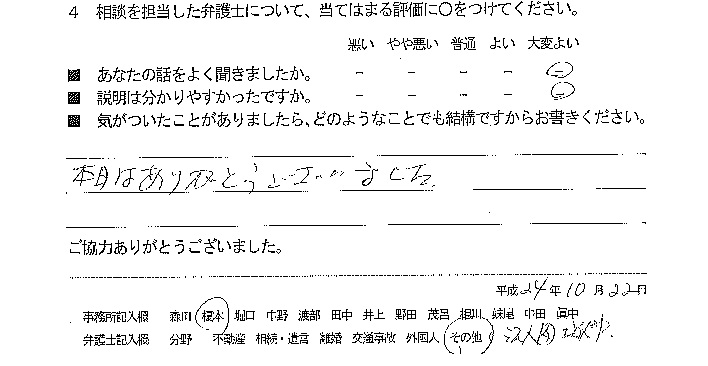 4 相談を担当した弁護士について、当てはまる評価に○をつけてください。
悪い やや悪い 普通 よい 大変よい
■ あなたの話をよく聞きましたか。 − − − − −
■ 説明は分かりやすかったですか。 − − − − −
■ 気がついたことがありましたら、どのようなことでも結構ですからお書きください。
本日はありがとうございました。
ご協力ありがとうございました。
平成24年10月22日
事務所記入欄 森田 榎本 堀口 中野 渡部 田中 井上 野田 茂呂 相川 妹尾 中田 眞中
弁護士記入欄 分野 不動産 相続・遺言 離婚 交通事故 外国人 その他